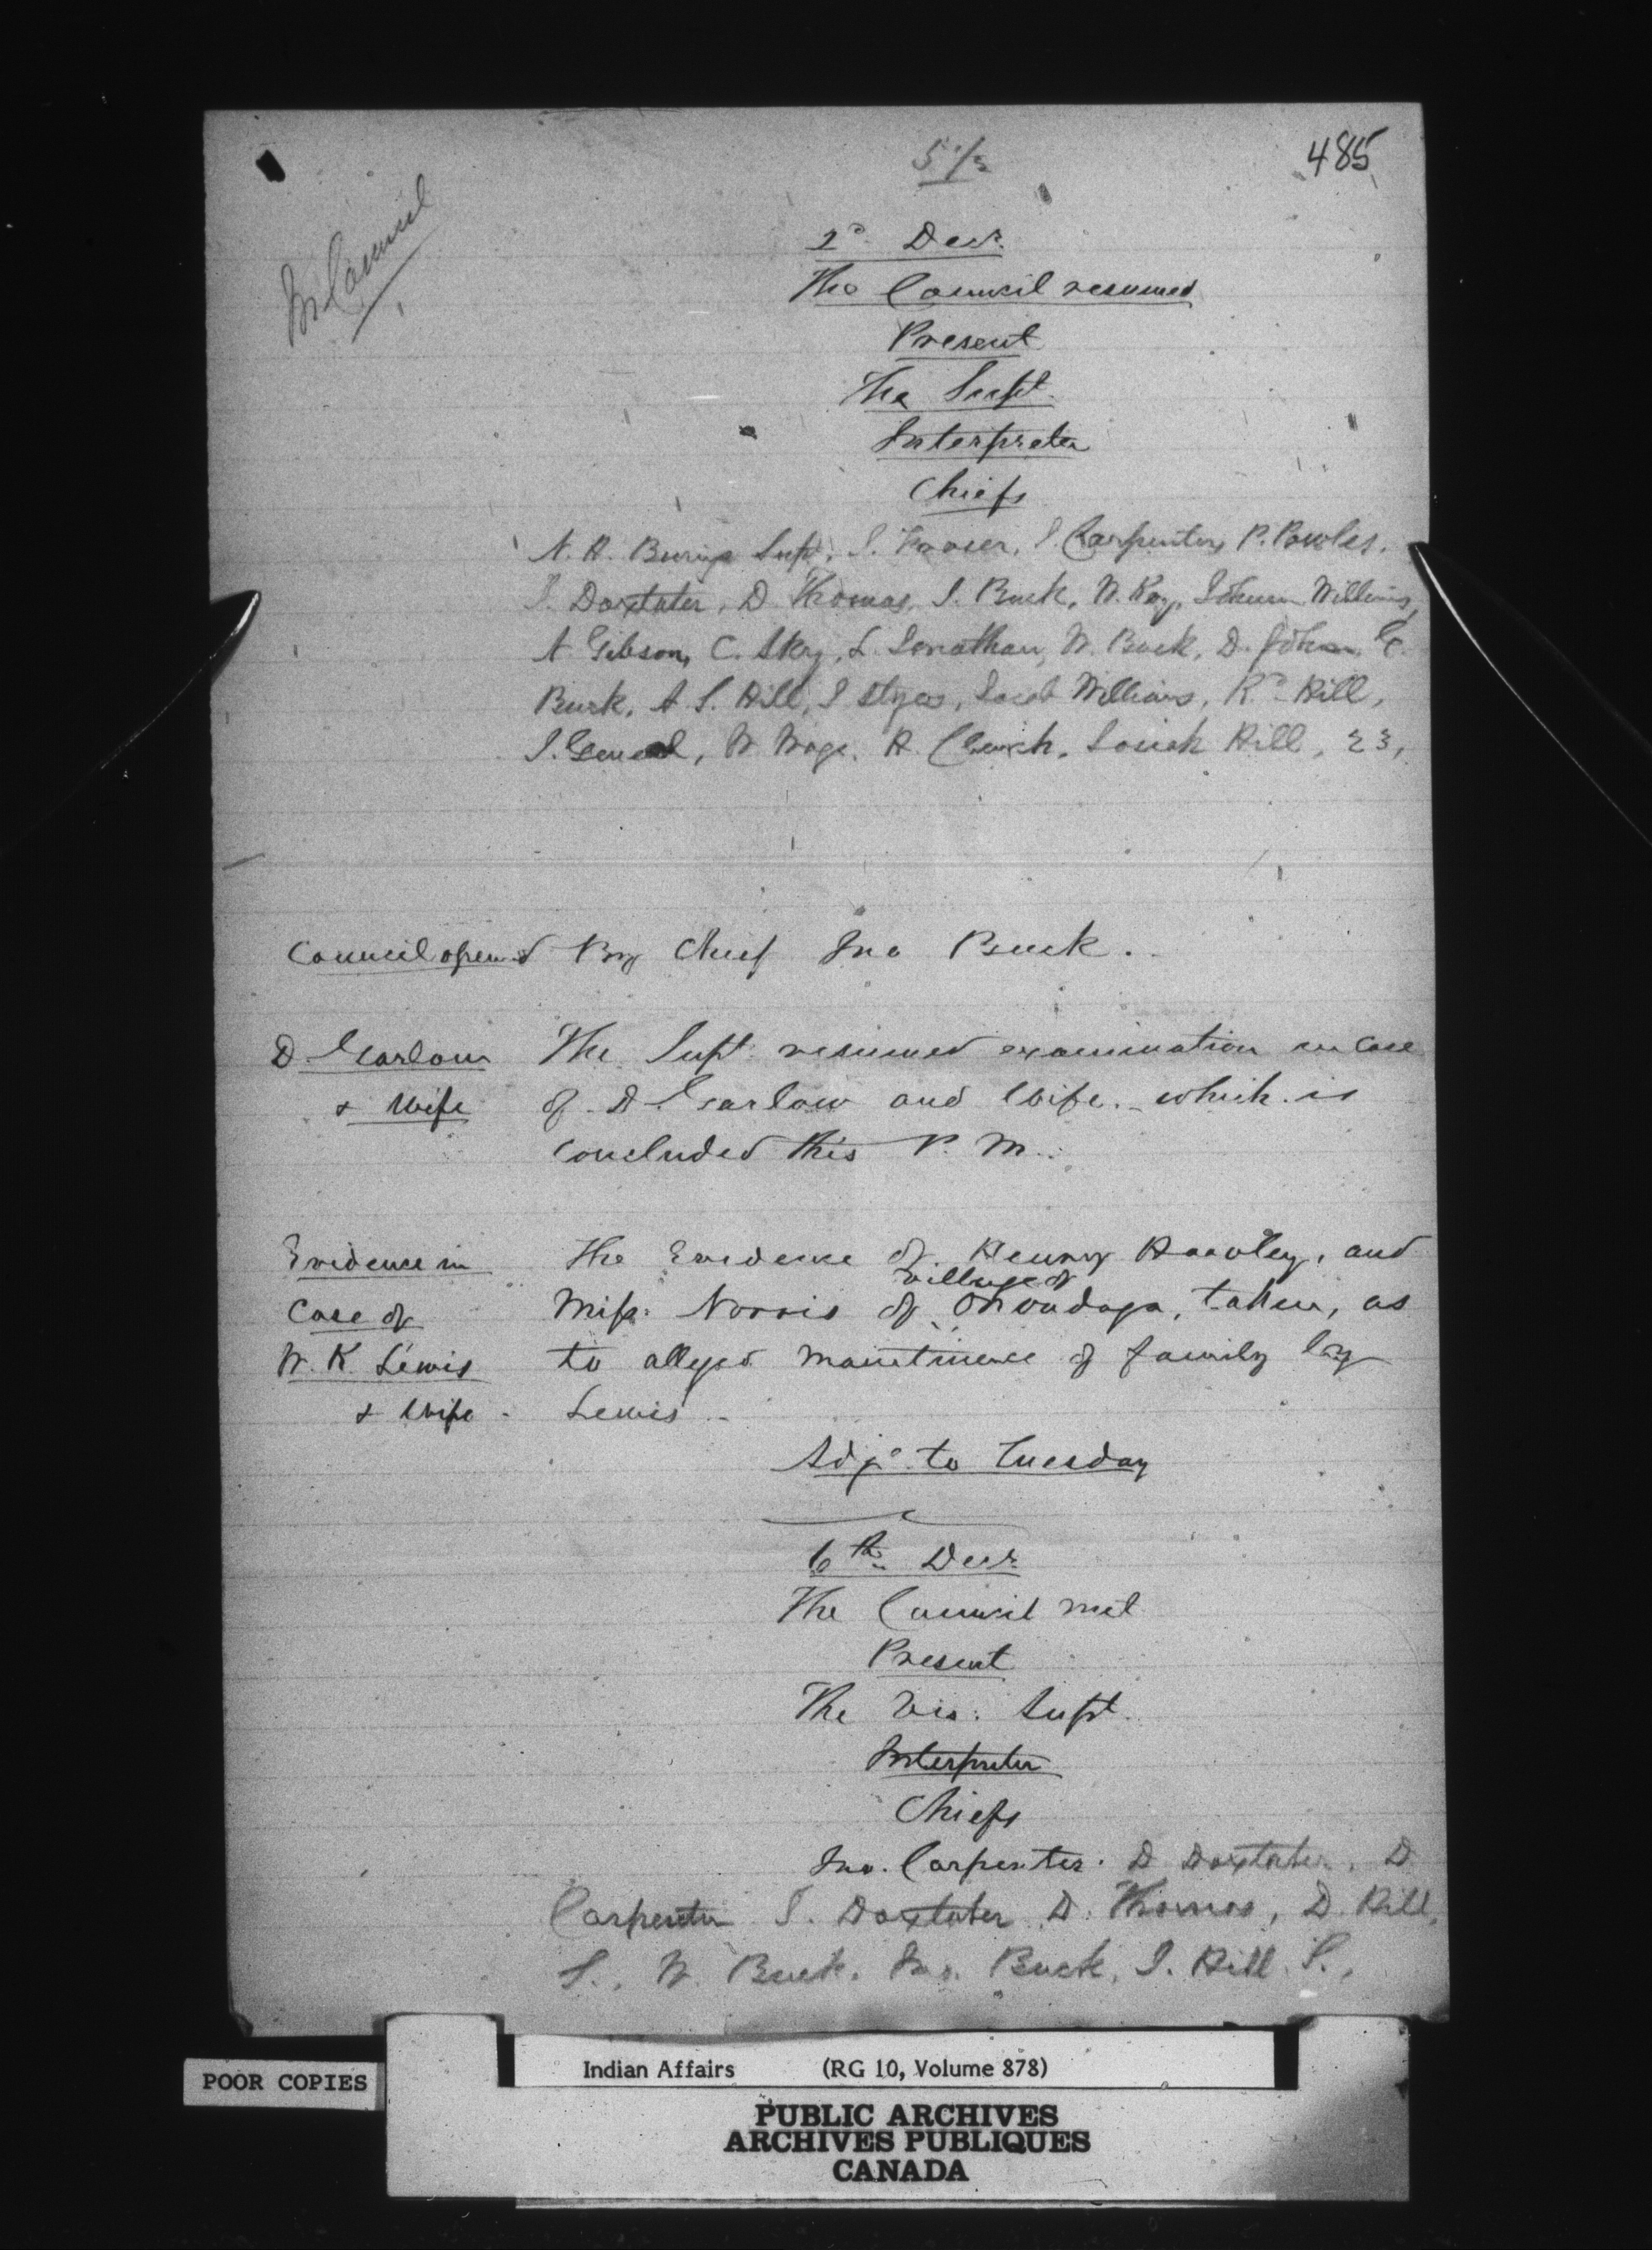 5 1/2
485
In Council
2d Decr.
The Council resumed
Present
The Supt.
Interpreter
Chiefs
N. H. Burning Supt, J. Fraser, J. Carpenter, P. Powles,
J. Doxtater, D. Thomas, J. Buck, W. Key, Johnson Williams,
A. Gibson, C. Sky, L. Jonathan, W. Buck, D. John, C.
Burk, A. S. Hill, J Styres, Jacob Williams, Rd Hill,
J. General, W. Wage, A. Clench, Josiah Hill, 23,
Council opened By Chief Jno Buck.
D Garlow The Supt resumed examination in Case
& Wife of D Garlow and Wife. which is
concluded this P. M.
Evidence in The Evidence of Henry Hawley, and
village of
Case of Miss. Norris of Onondaga, taken, as
W. K. Lewis to alleged maintinence of family by
& Wife - Lewis -
Adjd to Tuesday
6th Decr
The Council met
Present
The Vis: Supt.
Interpreter
Chiefs
Jno. Carpenter. D Doxtater, D
Carpenter J. Doxtater D. Thomas, D. Hill,
S., W. Buck. Jno. Buck, J. Hill S.,
POOR COPIES
Indian Affairs (RG 10, Volume 878)
PUBLIC ARCHIVES
ARCHIVES PUBLIQUES
CANADA